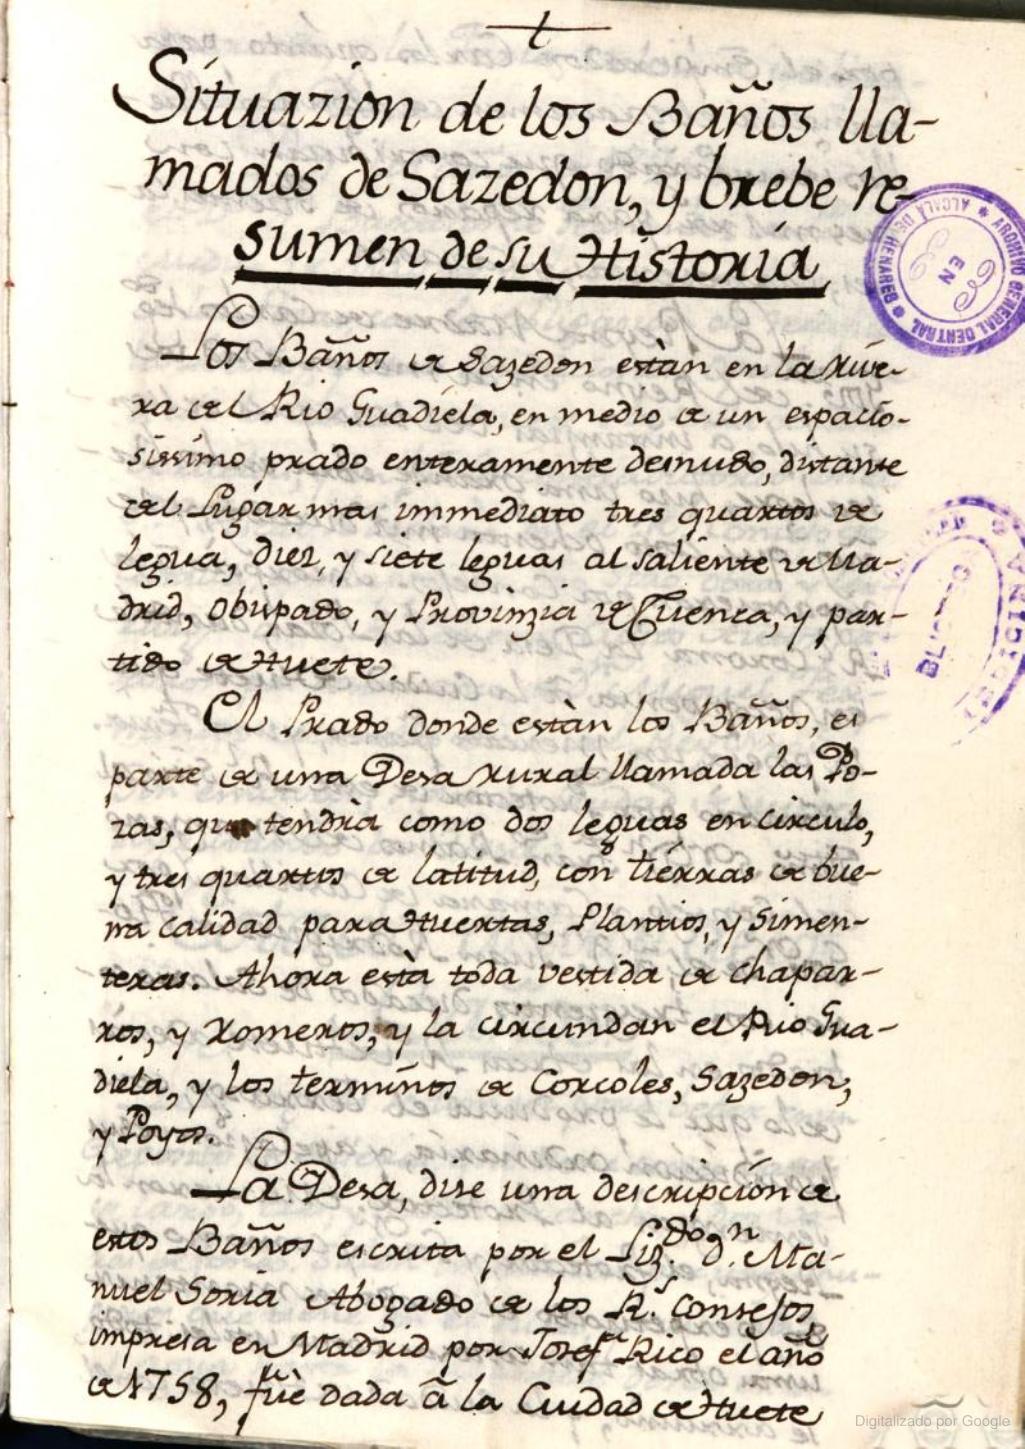 Situazion de los Baños lla-
mados de Sazedon, y brebe re-
sumen de su Historia
Los Baños de Sazedon estàn en la Rive-
ra del Rio Guadiela, en medio de un espacio-
sissimo prado enteramente desnudo, distante
del Lugar mas immediato tres quartos de
legua, diez, y siete leguas al saliente de Ma-
drid, Obispado, y Provinzia de Cuenca, y par-
tido de Huete.
El Prado donde estàn los Baños, es
parte de una Desa rural llamada las Po-
zas, que tendrìa como dos leguas en circulo,
y tres quartos de latitud, con tierras de bue-
na calidad para Huertas, Plantios, y Simen-
teras. Ahora està toda vestida de chapar-
ros, y Romeros, y la circundan el Rio Gua-
diela, y los terminos de Corcoles, Sazedon,
y Poyos.
La Desa, dise una descripcion de
estos Baños escrita por el Liz.do d.n Ma-
nuel Soria Abogado de los R.s Consejos,
impresa en Madrid por Josef Rico el año
de 1758, fuè dada â la Ciudad de Huete
ARCHIVO GENERAL CENTRAL
EN
ALCALÁ DE HENARES
Digitalizado por Google